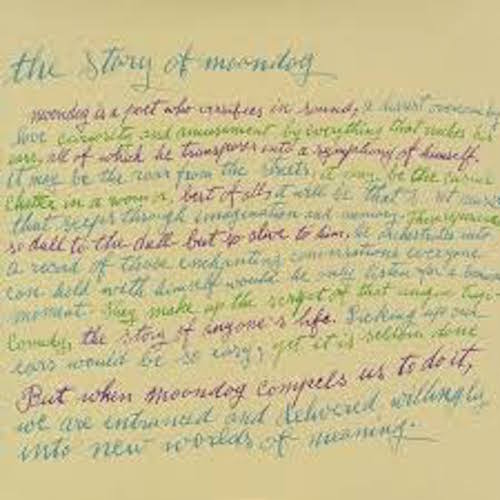 the Story of moondog
moondog is a poet who versifies in sound, a diarist overcome by
love curiosity and amusement by everything that makes his
ears, all of which he transposes into a symphony of himself.
it may be the roar from the streets, it may be the
chatter in a womb, best of all, it will be that
that seeps through imagination and memory.
so dull to the dull but so alive to him, he orchestrates into
a record of those enchanting conversations everyone
can hold with himself would he only listen for a
moment. They make up the script of that unique
Comedy, the story of anyone's life. Picking up our
ears would be so easy, yet it is seldom done
But when moondog compels us to do it,
we are entranced and delivered, willingly,
into new worlds of meaning.